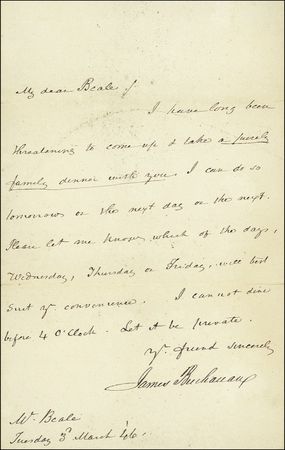 My dear Beale /
I have long been
threatening to come up & take a purely
family dinner with you. I can do so
tomorrow or the next day or the next.
Please let me know which of the days,
Wednesday, Thursday or Friday, will best
suit yr. convenience. I cannot dine
before 4 O'Clock. Let it be private.
yr. friend sincerely
James Buchanan
Mr. Beale
Tuesday 3d March '46.